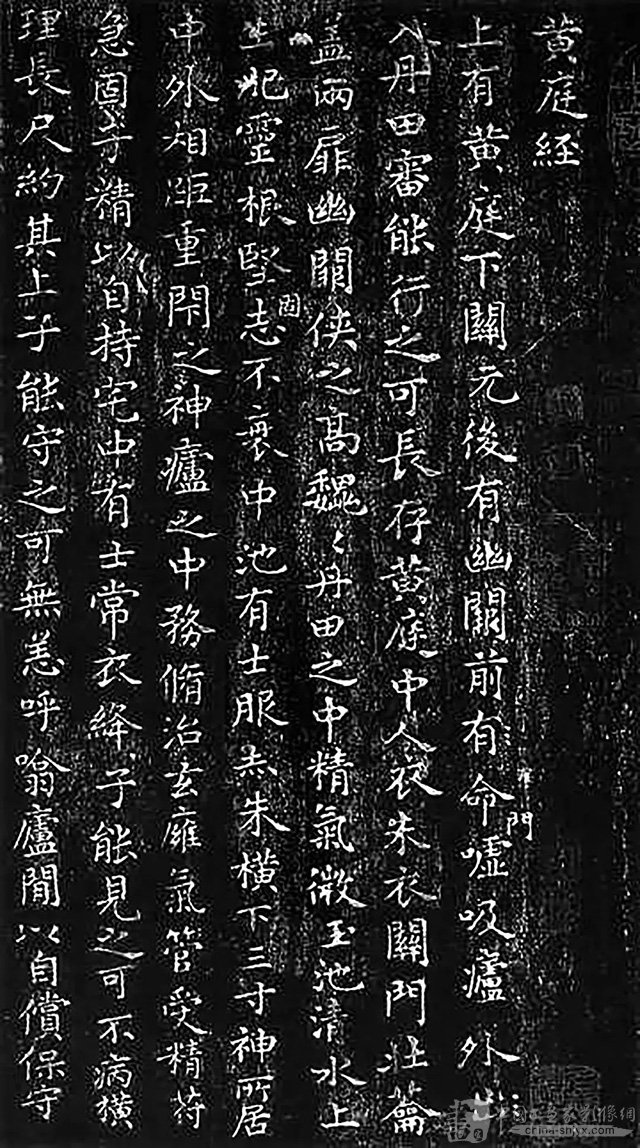 黃庭経
上有黃庭下關元後有幽闕前有命門噓吸廬外出
入丹田審能行之可長存黃庭中人衣朱衣關門壯籥
盖兩扉幽闕俠之高魏〻丹田之中精氣微玉池清水上
生肥靈根堅固志不衰中池有士服赤朱橫下三寸神所居
中外相距重閇之神廬之中務脩治玄廱氣管受精符
急固子精以自持宅中有士常衣絳子能見之可不病橫
理長尺約其上子能守之可無恙呼噏廬間以自償保守
china-shyx.com